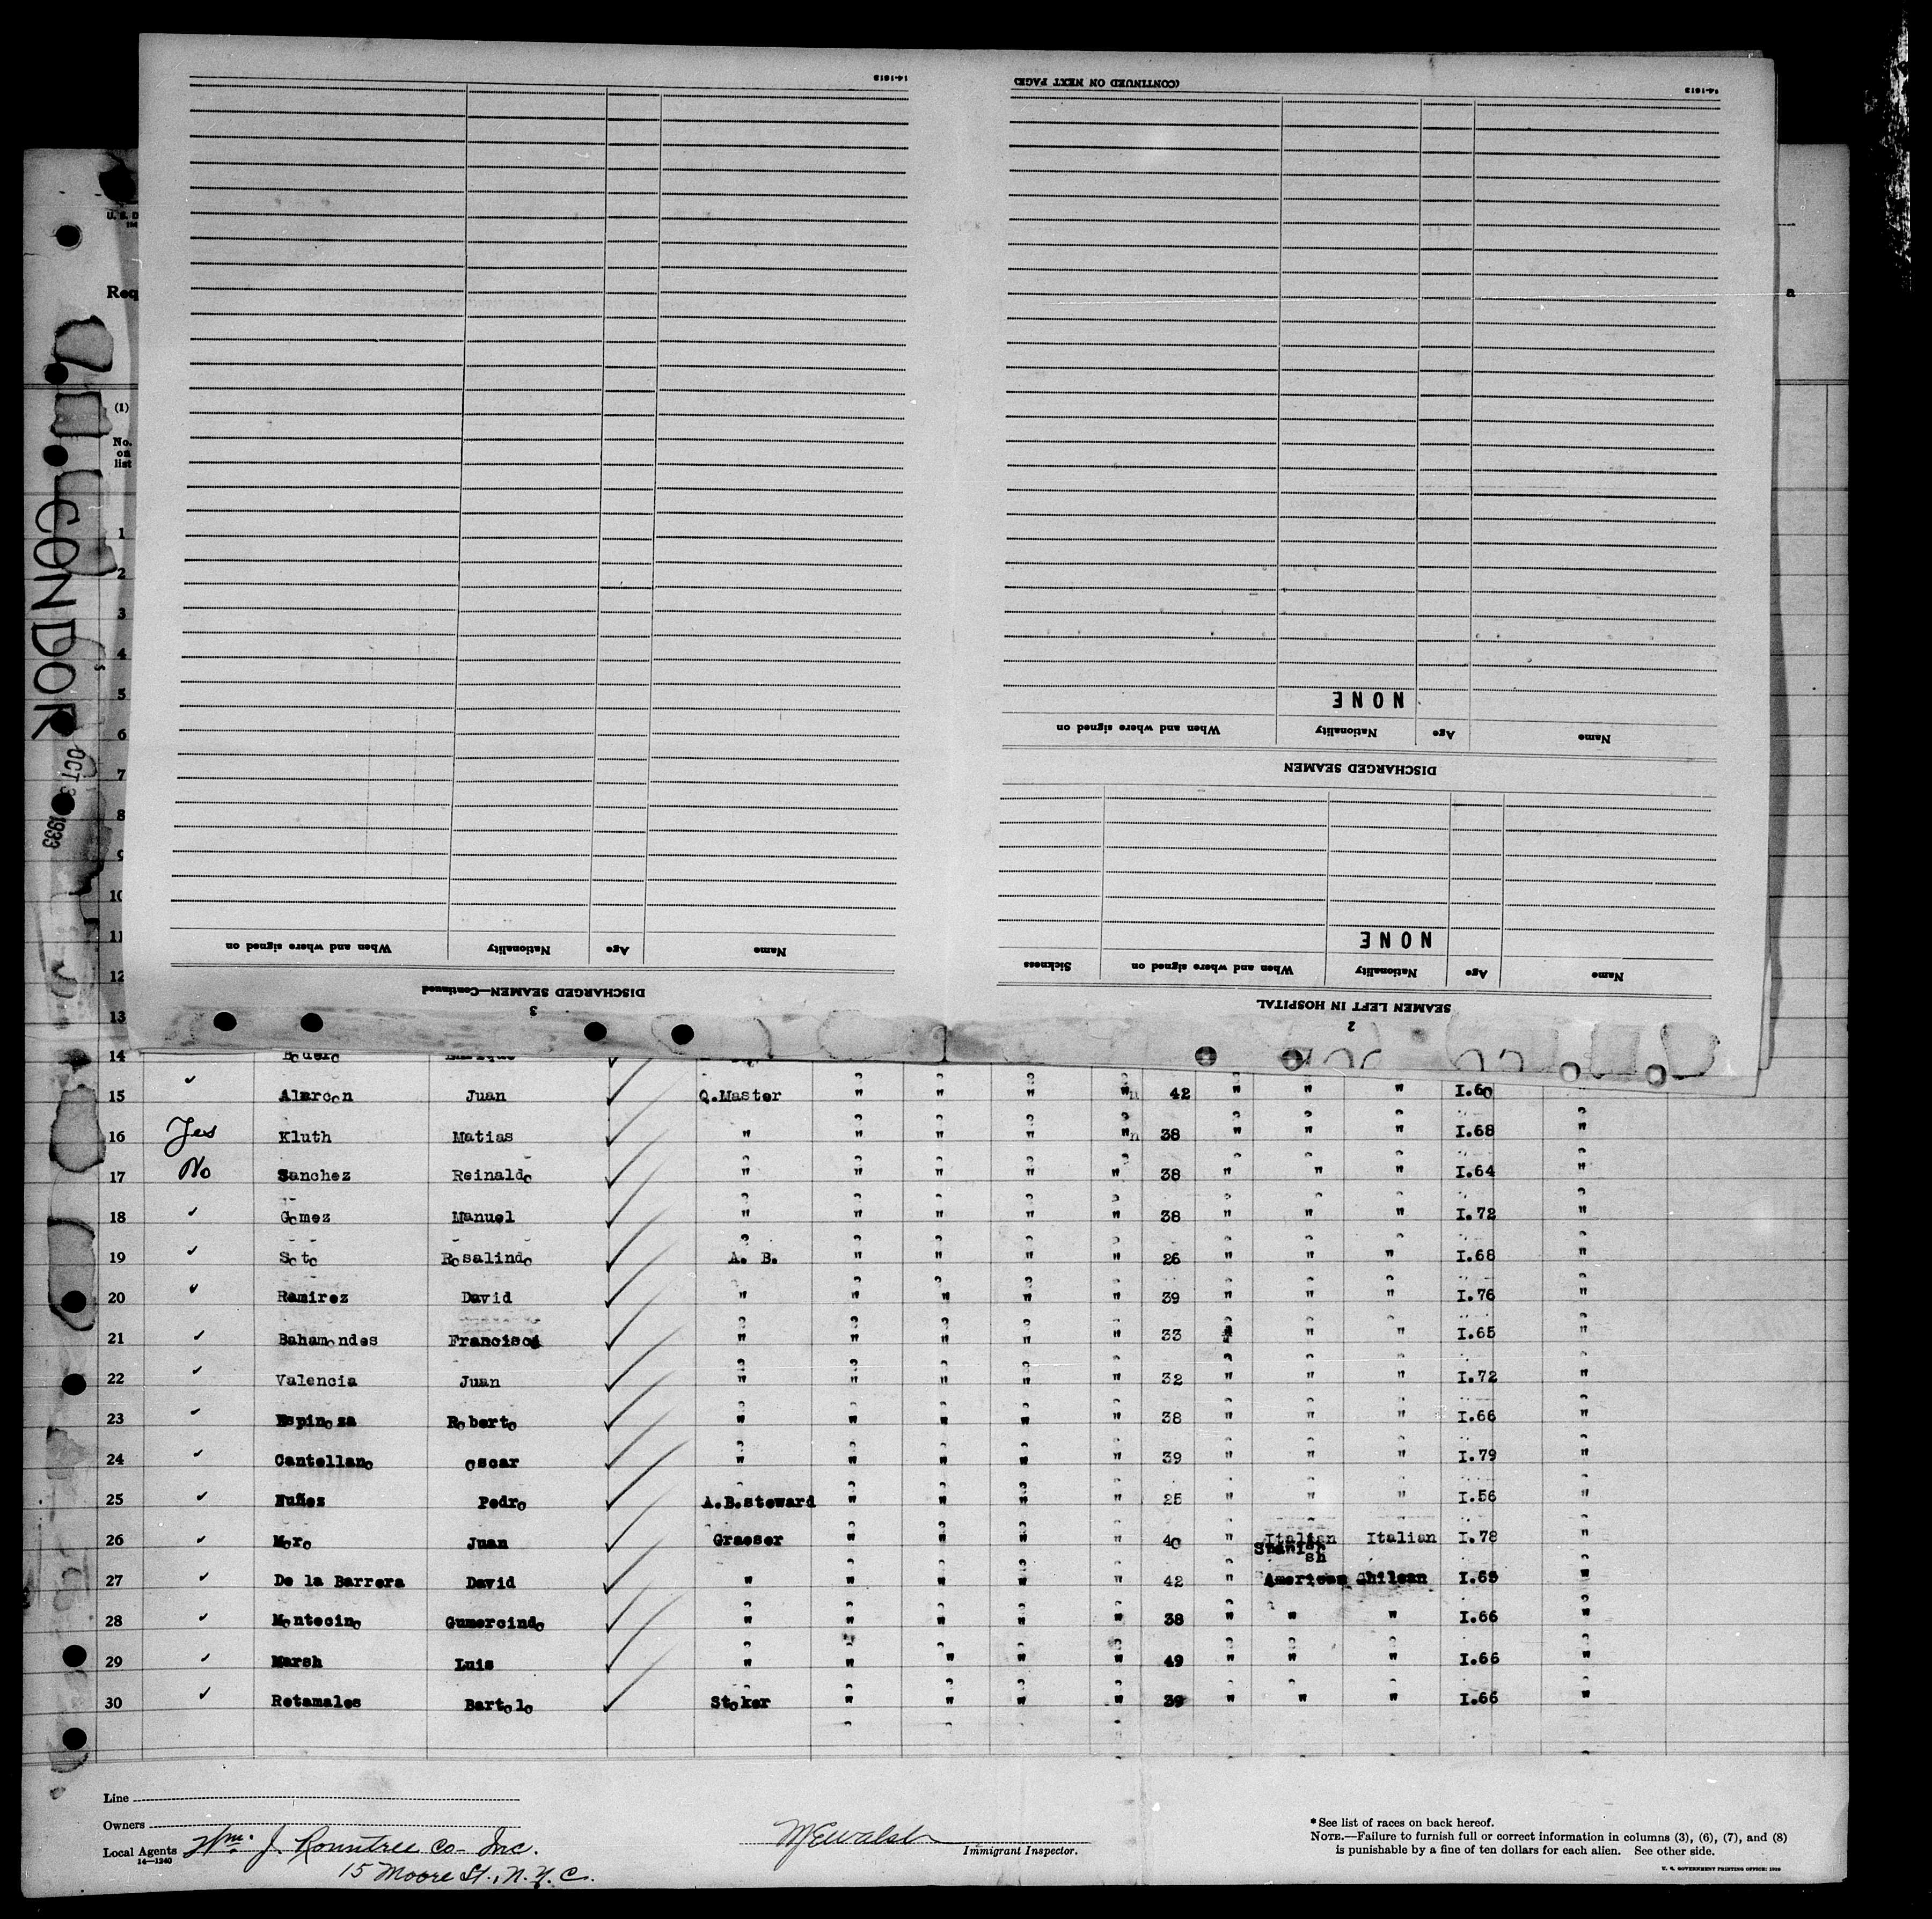 14-1613
(CONTINUED ON NEXT PAGE)
14-1613
NONE
When and where signed on Nationality Age Name
DISCHARGED SEAMEN
NONE
Sickness When and where signed on Nationality Age Name
SEAMEN LEFT IN HOSPITAL
2
When and where signed on Nationality Age Name
DISCHARGED SEAMEN—Continued
3
U. S. D
Req
a
CONDOR
OCT 3 1933
(1)
No. on list
1
2
3
4
5
6
7
8
9
10
11
12
13
14
15 ✓ Alarcon Juan ✓ Q.Master " " " " 42 " " " I.60
16 Yes Kluth Matias ✓ " " " " " 38 " " " I.68 "
17 No Sanchez Reinaldo ✓ " " " " " 38 " " " I.64 "
18 ✓ Gomez Manuel ✓ " " " " " 38 " " " I.72 "
19 ✓ Soto Rosalindo ✓ A. B. " " " " 26 " " " I.68 "
20 ✓ Ramirez David ✓ " " " " " 39 " " " I.76 "
21 ✓ Bahamondes Francisco ✓ " " " " " 33 " " " I.65 "
22 ✓ Valencia Juan ✓ " " " " " 32 " " " I.72 "
23 ✓ Espinoza Roberto ✓ " " " " " 38 " " " I.66 "
24 ✓ Cantellano Oscar ✓ " " " " " 39 " " " I.79 "
25 ✓ Nuñez Pedro ✓ A.B.steward " " " " 25 " " " I.56 "
26 ✓ Moro Juan ✓ Graeser " " " " 40 " Italian Italian I.78 "
Spanish
27 ✓ De la Barrera David ✓ " " " " " 42 " American Chilean "
28 ✓ Montecino Gumercindo ✓ " " " " " 38 " " " I.66 "
29 ✓ Marsh Luis ✓ " " " " " 49 " " " I.66 "
30 ✓ Retamales Bartolo ✓ Stoker " " " " 39 " " " I.66 "
Line
Owners
Local Agents Wm. J. Rountree Co- Inc.
14—1240
15 Moore St., N.Y.C.
MEWalsh
Immigrant Inspector.
*See list of races on back hereof.
NOTE.—Failure to furnish full or correct information in columns (3), (6), (7), and (8)
is punishable by a fine of ten dollars for each alien. See other side.
U. S. GOVERNMENT PRINTING OFFICE: